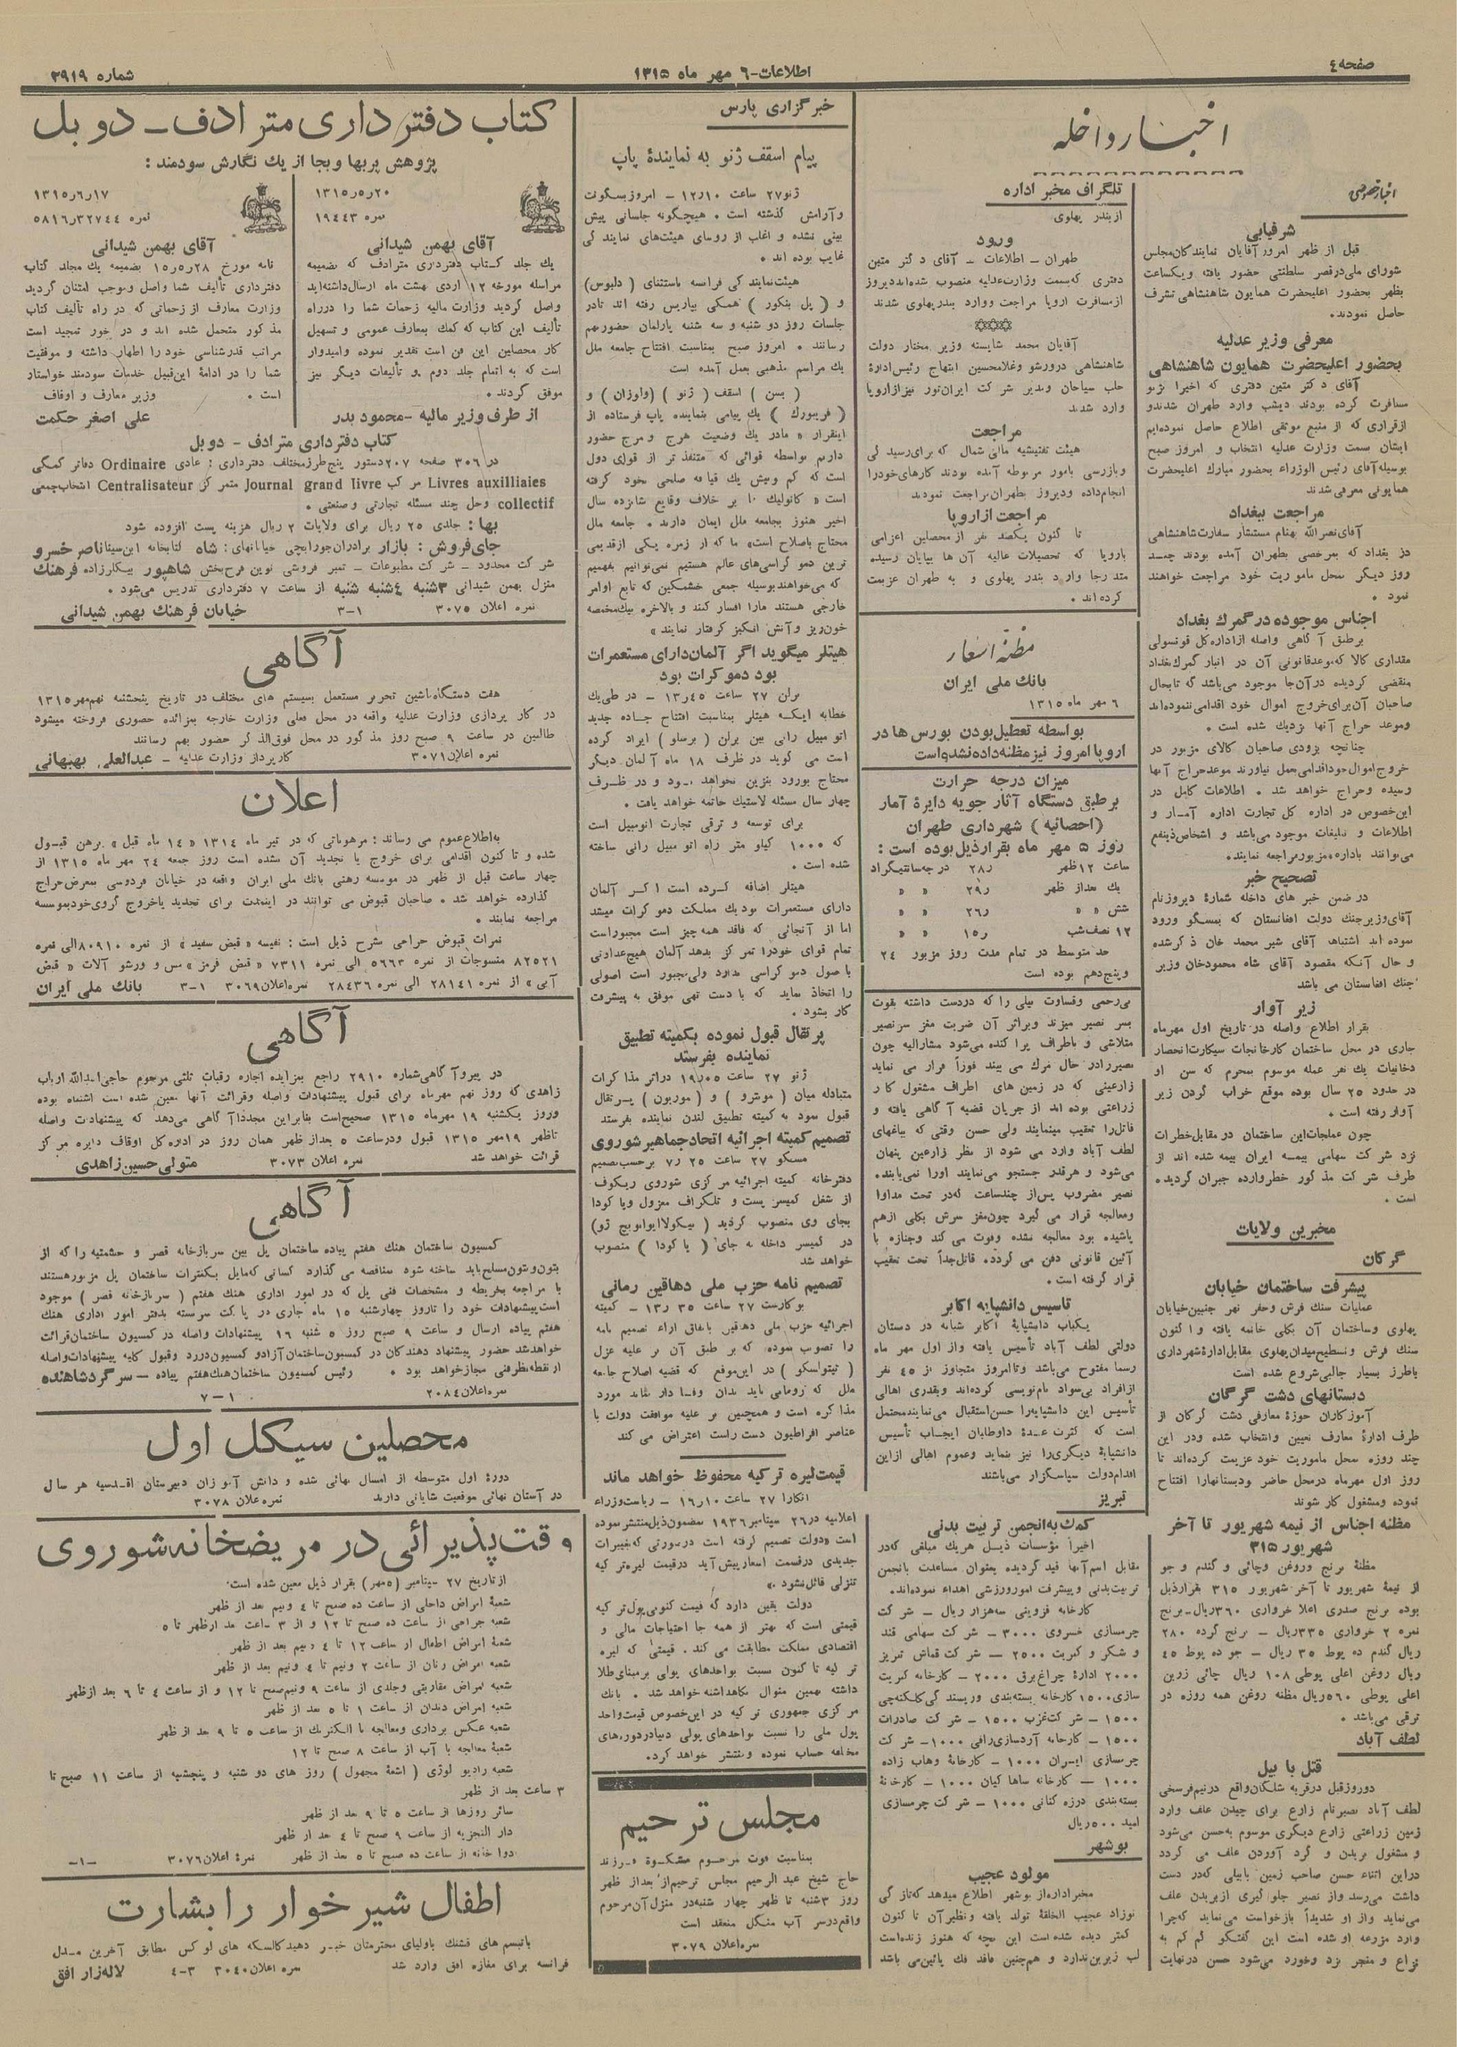 صفحه ٤
اطلاعات-٦ مهر ماه ١٣١٥
شماره ٣٩١٩
اخبار داخله
اخبار خصوصی
شرفیابی
قبل از ظهر امروز آقایان نمایندگان مجلس
شورای ملی در قصر سلطنتی حضور یافته و یکساعت
بظهر بحضور اعلیحضرت همایون شاهنشاهی تشرف
حاصل نمودند.
معرفی وزیر عدلیه
بحضور اعلیحضرت همایون شاهنشاهی
آقای دکتر متین دفتری که اخیرا بژنو
مسافرت کرده بودند دیشب وارد طهران شدند و
از قراری که از منبع موثقی اطلاع حاصل نموده‌ایم
ایشان سمت وزارت عدلیه انتخاب و امروز صبح
بوسیله آقای رئیس الوزراء بحضور مبارک اعلیحضرت
همایونی معرفی شدند
مراجعت ببغداد
آقای نصرالله بهنام مستشار سفارت شاهنشاهی
در بغداد که بمرخصی بطهران آمده بودند چند
روز دیگر بمحل ماموریت خود مراجعت خواهند
نمود .
اجناس موجوده در گمرك بغداد
برطبق آگاهی واصله از اداره کل قونسولی
مقداری کالا که موعد قانونی آن در انبار گمرك بغداد
منقضی گردیده در آنجا موجود می‌باشد که تابحال
صاحبان آن برای خروج اموال خود اقدامی ننموده‌اند
وموعد حراج آنها نزدیك شده است .
چنانچه بزودی صاحبان کالای مزبور در
خروج اموال خود اقدامی بعمل نیاورند موعد حراج آنها
رسیده وحراج خواهد شد . اطلاعات کامل در
این‌خصوص در اداره کل تجارت اداره آمار و
اطلاعات و تبلیغات موجود می‌باشد و اشخاص ذینفع
می‌توانند باداره مزبور مراجعه نمایند.
تصحیح خبر
در ضمن خبر های داخله شمارۀ دیروز نام
آقای وزیر جنك دولت افغانستان که بمسگو ورود
نموده اند اشتباها آقای شیر محمد خان ذکر شده
و حال آنکه مقصود آقای شاه محمود خان وزیر
جنك افغانستان می باشد
زیر آوار
بقرار اطلاع واصله در تاریخ اول مهرماه
جاری در محل ساختمان کارخانجات سیکارت انحصار
دخانیات یك نفر عمله موسوم بمحرم که سن او
در حدود ٢٥ سال بوده موقع خراب کردن زیر
آوار رفته است .
چون عملجات این ساختمان در مقابل خطرات
نزد شرکت سهامی بیمه ایران بیمه شده اند از
طرف شرکت مذکور خطر وارده جبران گردیده
است .
مخبرین ولایات
گرگان
پیشرفت ساختمان خیابان
عملیات سنك فرش وحفر نهر جنبین خیابان
پهلوی وساختمان آن بکلی خاتمه یافته و اکنون
سنك فرش و تسطیح میدان پهلوی مقابل ادارۀ شهرداری
باطرز بسیار جالبی شروع شده است
دبستانهای دشت گرگان
آموزگاران حوزۀ معارفی دشت گرگان از
طرف ادارۀ معارف تعیین وانتخاب شده ودر این
چند روزه بمحل ماموریت خود عزیمت کرده‌اند تا
روز اول مهرماه درمحل حاضر ودبستانهارا افتتاح
نموده ومشغول کار شوند
مظنه اجناس از نیمه شهریور تا آخر
شهریور ٣١٥
مظنۀ برنج وروغن وچائی و گندم و جو
از نیمۀ شهریور تا آخر شهریور ٣١٥ بقرار ذیل
بوده برنج صدری اعلا خرواری ٣٦٠ریال-برنج
نمره ٢ خرواری ٣٣٥ریال - برنج گرده ٢٨٠
ریال گندم ده پوط ٣٥ ریال - جو ده پوط ٤٥
ریال روغن اعلی پوطی ١٠٨ ریال چائی زرین
اعلی پوطی ٥٦٠ریال مظنه روغن همه روزه در
ترقی می‌باشد .
لطف آباد
قتل با بیل
دوروز قبل درقریه شلنگان واقع درنیم فرسخی
لطف آباد نصیرنام زارع برای چیدن علف وارد
زمین زراعتی زارع دیگری موسوم به‌حسن می‌شود
و مشغول بریدن و گرد آوردن علف می گردد
دراین اثناء حسن صاحب زمین بابیلی که‌در دست
داشت می‌رسد واز نصیر جلوگیری از بریدن علف
می‌نماید واز او شدیداً بازخواست می‌نماید که‌چرا
وارد مزرعه او شده است این گفتگو کم کم به
نزاع و منجر بزد وخورد می‌شود حسن در نهایت
تلگراف مخبر اداره
از بندر پهلوی
ورود
طهران - اطلاعات - آقای دکتر متین
دفتری که‌بسمت وزارت عدلیه منصوب شده‌اند دیروز
از مسافرت اروپا مراجعت و وارد بندرپهلوی شدند
آقایان محمد شایسته وزیر مختار دولت
شاهنشاهی در ورشو وغلامحسین ابتهاج رئیس ادارۀ
جلب سیاحان ومدیر شرکت ایران‌تور نیز از اروپا
وارد شدند
مراجعت
هیئت تفتیشیه مالی شمال که برای رسیدگی
وبازرسی بامور مربوطه آمده بودند کارهای خودرا
انجام داده ودیروز بطهران مراجعت نمودند
مراجعت از اروپا
تا کنون یکصد نفر از محصلین اعزامی
باروپا که تحصیلات عالیه آن ها بپایان رسیده
متدرجا وارد بندر پهلوی و به طهران عزیمت
کرده اند .
مظنۀ اسعار
بانك ملی ایران
٦ مهر ماه ١٣١٥
بواسطه تعطیل بودن بورس ها در
اروپا امروز نیز مظنه داده نشده است
میزان درجه حرارت
برطبق دستگاه آثار جویه دایرۀ آمار
(احصائیه) شهرداری طهران
روز ٥ مهر ماه بقرار ذیل بوده است :
ساعت ١٢ ظهر ٢٨ر درجه سانتیگراد
یك بعداز ظهر ٢٩ر « «
شش « « ٢٦ر « «
١٢ نصف شب ١٥ر « «
حد متوسط در تمام مدت روز مزبور ٢٤
وپنج‌دهم بوده است
بی‌رحمی وقساوت بیلی را که دردست داشته بقوت
بسر نصیر میزند وبراثر آن ضربت مغز سر نصیر
متلاشی و باطراف پراکنده می‌شود مشارالیه چون
نصیررادر حال مرك می بیند فوراً فرار می نماید
زارعینی که در زمین های اطراف مشغول کار
زراعتی بوده اند از جریان قضیه آگاهی یافته و
قاتل‌را تعقیب مینمایند ولی حسن وقتی که بباغهای
لطف آباد وارد می شود از نظر زارعین پنهان
می‌شود و هرقدر جستجو می‌نمایند اورا نمی‌یابند.
نصیر مضروب پس‌از چندساعت که‌در تحت مداوا
ومعالجه قرار می گیرد چون‌مغز سرش بکلی ازهم
پاشیده بود معالجه نشده وفوت می کند وجنازه با
آئین قانونی دفن می گردد. قاتل جداً تحت تعقیب
قرار گرفته است .
تاسیس دانشپایه اکابر
یکباب دانشپایۀ اکابر شبانه در دبستان
دولتی لطف آباد تأسیس یافته واز اول مهر ماه
رسما مفتوح می‌باشد وتاامروز متجاوز از ٤٥ نفر
ازافراد بی‌سواد نام‌نویسی کرده‌اند وبقدری اهالی
تأسیس این دانشپایه‌را حسن استقبال می‌نمایند محتمل
است که کثرت عدۀ داوطلبان ایجاب تأسیس
دانشپایۀ دیگری‌را نیز بنماید وعموم اهالی ازاین
اقدام دولت سپاسگزار می‌باشند
تبریز
کمك به‌انجمن تربیت بدنی
اخیراً مؤسسات ذیل هریك مبلغی که‌در
مقابل اسم آنها قید گردیده بعنوان مساعدت بانجمن
تربیت‌بدنی وپیشرفت امورورزشی اهداء نموده‌اند.
کارخانه قزوینی سه‌هزار ریال - شرکت
چرمسازی خسروی ٣٠٠٠ - شرکت سهامی قند
و شکر و کبریت ٢٥٠٠ - شرکت قماش تبریز
٢٠٠٠ ادارۀ چراغ‌برق ٢٠٠٠ - کارخانه کبریت
سازی ١٥٠٠ کارخانه بسته‌بندی وریسندگی کلکته‌چی
١٥٠٠ - شرکت غرب ١٥٠٠ - شرکت صادرات
١٥٠٠ - کارخانه آردسازی رافی ١٠٠٠- شرکت
چرمسازی ایران ١٠٠٠ - کارخانۀ وهاب زاده
١٠٠٠ - کارخانه ساهاکیان ١٠٠٠ - کارخانۀ
بسته‌بندی درزه کنانی ١٠٠٠ - شرکت چرمسازی
امید ٥٠٠ریال
بوشهر
مولود عجیب
مخبر اداره‌از بوشهر اطلاع میدهد که‌تازگی
نوزاد عجیب الخلقۀ تولد یافته ونظیر آن تا کنون
کمتر دیده شده است این بچه که هنوز زنده‌است
لب زیرین ندارد و هم‌چنین فاقد فك پائین‌می باشد
خبرگزاری پارس
پیام اسقف ژنو به نمایندۀ پاپ
ژنو٢٧ ساعت ١٠ر١٢ - امروز بسگونت
وآرامش گذشته است . هیچگونه جلساتی پیش
بینی نشده و اغلب از روسای هیئت‌های نمایندگی
غایب بوده اند .
هیئت‌نمایندگی فرانسه باستثنای (دلبوس)
و (پل بنکور) همگی بپاریس رفته اند تادر
جلسات روز دوشنبه و سه شنبه پارلمان حضوربهم
رسانند . امروز صبح بمناسبت افتتاح جامعه ملل
یك مراسم مذهبی بعمل آمده است
(بسن) اسقف (ژنو) (ولوزان) و
(فریبورك) یك پیامی بنماینده پاپ فرستاده از
اینقرار « مادر یك وضعیت هرج و مرج حضور
داریم بواسطه قوائی که متنفذ تر از قوای دول
است که کم وبیش یك قیافه صلحی بخود گرفته
است « کاتولیك ها بر خلاف وقایع شانزده سال
اخیر هنوز بجامعه ملل ایمان دارند . جامعه ملل
محتاج باصلاح است» ما که از زمره یکی ازقدیمی
ترین دموکراسی‌های عالم هستیم نمی‌توانیم بفهمیم
که می‌خواهند بوسیله جمعی خشمگین که تابع اوامر
خارجی هستند مارا افسار کنند و بالاخره بیك‌مخمصه
خون‌ریز وآتش انگیز گرفتار نمایند »
هیتلر میگوید اگر آلمان دارای مستعمرات
بود دموکرات بود
برلن ٢٧ ساعت ٤٥ر١٣ - در طی یك
خطابه ایکه هیتلر بمناسبت افتتاح جاده جدید
اتو مبیل رانی بین برلن (برسلو) ایراد کرده
است می گوید در ظرف ١٨ ماه آلمان دیگر
محتاج بورود بنزین نخواهد بود و در ظرف
چهار سال مسئله لاستیك خاتمه خواهد یافت .
برای توسعه و ترقی تجارت اتومبیل است
که ١٠٠٠ کیلو متر راه اتو مبیل رانی ساخته
شده است .
هیتلر اضافه کرده است اگر آلمان
دارای مستعمرات بود یك مملکت دموکرات میشد
اما از آنجائی که فاقد همه چیز است مجبوراست
تمام قوای خودرا تمرکز بدهد آلمان هیچ‌عداوتی
باصول دموکراسی ندارد ولی‌مجبور است اصولی
را اتخاذ نماید که با دست تهی موفق به پیشرفت
کار بشود .
پرتقال قبول نموده بکمیته تطبیق
نماینده بفرستد
ژنو ٢٧ ساعت ٠٥ر١٩ دراثر مذاکرات
متبادله میان (مونترو) و (موریون) پرتقال
قبول نمود به کمیته تطبیق لندن نماینده بفرستد
تصمیم کمیته اجرائیه اتحاد جماهیر شوروی
مسکو ٢٧ ساعت ٢٥ر٧ برحسب‌تصمیم
دفترخانه کمیته اجرائیه مرکزی شوروی ریکوف
از شغل کمیسر پست و تلگراف معزول ویاکودا
بجای وی منصوب گردید (نیکولاایوانویچ ژو)
در کمیسر داخله به جای (یاکودا) منصوب
خواهد شد
تصمیم نامه حزب ملی دهاقین رمانی
بوکارست ٢٧ ساعت ٣٥ر١٣ - کمیته
اجرائیه حزب ملی دهقین باتفاق آراء تصمیم نامه
را تصویب نموده، که بر طبق آن بر علیه عزل
(تیتولسکو) در این‌موقع که قضیه اصلاح جامعه
ملل که رومانی باید بدان وفا دار بماند مورد
مذاکره است و همچنین بر علیه موافقت دولت با
عناصر افراطیون دست راست اعتراض می کند
قیمت‌لیره ترکیه محفوظ خواهد ماند
انکارا ٢٧ ساعت ١٠ر١٦ - ریاست‌وزراء
اعلامیه در٢٦ سپتامبر ١٩٣٦ بمضمون ذیل‌منتشرنموده
است «دولت تصمیم گرفته است درصورتی که تغییرات
جدیدی درقسمت اسعارپیش‌آید درقیمت لیره‌ترکیه
تنزلی قائل نشود .»
دولت یقین دارد که قیمت کنونی‌پول‌ترکیه
قیمتی است که بهتر از همه جا احتیاجات مالی و
اقتصادی مملکت مطابقت می کند . قیمتی که لیره
ترکیه تا کنون نسبت بواحدهای پولی برمبنای‌طلا
داشته بهمین منوال نگاهداشته خواهد شد . بانك
مرکزی جمهوری ترکیه در این‌خصوص قیمت‌واحد
پول ملی را نسبت بواحدهای پولی دنیادردوره‌های
مختلفه حساب نموده ومنتشر خواهد کرد.
مجلس ترحیم
بمناسبت فوت مرحوم مشکوة فرزند
حاج شیخ عبدالرحیم مجلس ترحیم‌از بعداز ظهر
روز ٣شنبه تا ظهر چهار شنبه‌در منزل آن‌مرحوم
واقع‌درسر آب منگل منعقد است
نمره‌اعلان ٣٠٧٩
کتاب دفترداری مترادف - دوبل
پژوهش پربها وبجا از یك نگارش سودمند :
٢٠ر٥ر١٣١٥
نمره ١٩٤٤٣
آقای بهمن شیدانی
یك جلد کتاب دفترداری مترادف که بضمیمه
مراسله مورخه ١٢ اردی بهشت ماه ارسال‌داشته‌اید
واصل گردید وزارت مالیه زحمات شما را درراه
تألیف این کتاب که کمك بمعارف عمومی و تسهیل
کار محصلین این فن است تقدیر نموده وامیدوار
است که به اتمام جلد دوم و تألیفات دیگر نیز
موفق گردند .
از طرف وزیر مالیه -محمود بدر
١٧ر٦ر١٣١٥
نمره ٣٢٧٤٤ر٥٨١٦
آقای بهمن شیدانی
نامه مورخ ٢٨ر٥ر١٥ بضمیمه یك مجلد کتاب
دفترداری تألیف شما واصل وموجب امتنان گردید
وزارت معارف از زحماتی که در راه تألیف کتاب
مذکور متحمل شده اند و در خور تمجید است
مراتب قدرشناسی خود را اظهار داشته و موفقیت
شما را در ادامۀ این‌قبیل خدمات سودمند خواستار
است . وزیر معارف و اوقاف
علی اصغر حکمت
کتاب دفترداری مترادف - دوبل
در ٣٠٦ صفحه ٢٠٧ دستور پنج‌طرز مختلف دفترداری : عادی Ordinaire دفاتر کمکی
Livres auxilliaies مرکب Journal grand livre متمرکز Centralisateur انتخاب‌جمعی
collectif وحل چند مسئله تجارتی و صنعتی .
بها : جلدی ٢٥ ریال برای ولایات ٢ ریال هزینه پست افزوده شود
جای‌فروش : بازار برادران جورابچی خیابانهای : شاه کتابخانه ابن‌سینا ناصر خسرو
شرکت محدود - شرکت مطبوعات - تمبر فروشی نوین فرح‌بخش شاهپور بیکلرزاده فرهنك
منزل بهمن شیدانی ٣شنبه ٤شنبه شنبه از ساعت ٧ دفترداری تدریس می‌شود .
نمره اعلان ٣٠٧٥ ١-٣ خیابان فرهنك بهمن شیدانی
آگاهی
هفت دستگاه ماشین تحریر مستعمل بسیستم های مختلف در تاریخ پنجشنبه نهم مهر ١٣١٥
در کارپردازی وزارت عدلیه واقعه در محل فعلی وزارت خارجه بمزائده حضوری فروخته میشود
طالبین در ساعت ٩ صبح روز مذکور در محل فوق الذکر حضور بهم رسانند
نمره اعلان ٣٠٧١ کارپرداز وزارت عدلیه - عبدالعلی بهبهانی
اعلان
به‌اطلاع‌عموم می رساند : مرهوناتی که در تیر ماه ١٣١٤ «١٤ ماه قبل» برهن قبول
شده و تا کنون اقدامی برای خروج یا تجدید آن نشده است روز جمعه ٢٤ مهر ماه ١٣١٥ از
چهار ساعت قبل از ظهر در موسسه رهنی بانك ملی ایران واقعه در خیابان فردوسی بمعرض‌حراج
گذارده خواهد شد . صاحبان قبوض می توانند در اینمدت برای تجدید یاخروج گروی‌خود بموسسه
مراجعه نمایند .
نمرات قبوض حراجی بشرح ذیل است : نفیسه «قبض سفید» از نمره ٨٠٩١٠الی نمره
٨٢٥٢١ منسوجات از نمره ٥٦٦٣ الی نمره ٧٣١١ «قبض قرمز» مس و ورشو آلات «قبض
آبی» از نمره ٢٨١٤١ الی نمره ٢٨٤٣٦ نمره اعلان ٣٠٦٩ ١-٣ بانك ملی ایران
آگاهی
در پیرو آگاهی شماره ٢٩١٠ راجع بمزایده اجاره رقبات ثلثی مرحوم حاجی‌اسدالله ارباب
زاهدی که روز نهم مهرماه برای قبول پیشنهادات واصله وقرائت آنها معین شده است اشتباه بوده
وروز یکشنبه ١٩ مهرماه ١٣١٥ صحیح‌است بنابراین مجدداً آگاهی می‌دهد که پیشنهادت واصله
تاظهر ١٩مهر ١٣١٥ قبول ودرساعت ٥ بعداز ظهر همان روز در اداره کل اوقاف دایره مرکز
قرائت خواهد شد نمره اعلان ٣٠٧٣ متولی حسین زاهدی
آگاهی
کمسیون ساختمان هنك هفتم پیاده ساختمان پل بین سربازخانه قصر و حشمتیه را که از
بتون‌وبتون‌مسلح‌باید ساخته شود بمناقصه می گذارد کسانی که‌مایل بکنترات ساختمان پل مزبور هستند
با مراجعه بخریطه و مشخصات فنی پل که در امور اداری هنك هفتم (سربازخانه قصر) موجود
است پیشنهادات خود را تاروز چهارشنبه ١٥ ماه جاری در پاکت سربسته بدفتر امور اداری هنك
هفتم پیاده ارسال و ساعت ٩ صبح روز ٥ شنبه ١٦ پیشنهادات واصله در کمسیون ساختمان قرائت
خواهدشد حضور پیشنهاد دهندگان در کمسیون ساختمان آزاد و کمسیون دررد وقبول کلیه پیشنهادات واصله
ازنقطه‌نظر فنی مجاز خواهد بود . رئیس کمسیون ساختمان هنك هفتم پیاده - سرگرد شاهنده
نمره اعلان ٢٠٨٤ ١-٧
محصلین سیکل اول
دورۀ اول متوسطه از امسال نهائی شده و دانش آموزان دبیرستان اقدسیه هر سال
در آستان نهائی موفقیت شایانی دارند نمره‌علان ٣٠٧٨
وقت‌پذیرائی در مریضخانه شوروی
از تاریخ ٢٧ سپتامبر (٥مهر) بقرار ذیل معین شده است:
شعبۀ امراض داخلی از ساعت ده صبح تا ٤ ونیم بعد از ظهر
شعبه جراحی از ساعت ده صبح تا ١٢ و از ٣ ساعت بعد ازظهر تا ٥
شعبۀ امراض اطفال از ساعت ١٢ تا ٤ ونیم بعد از ظهر
شعبه امراض زنان از ساعت ٢ ونیم تا ٤ ونیم بعد از ظهر
شعبه امراض مقاربتی وجلدی از ساعت ٩ ونیم‌صبح تا ١٢ و از ساعت ٤ تا ٦ بعد ازظهر
شعبه امراض دندان از ساعت ١ تا ٥ بعد از ظهر
شعبه عکس برداری ومعالجه با الکتریك از ساعت ٥ تا ٩ بعد از ظهر
شعبۀ معالجه با آب از ساعت ٨ صبح تا ١٢
شعبه رادیو لوژی (اشعۀ مجهول) روز های دو شنبه و پنجشبه از ساعت ١١ صبح تا
٣ ساعت بعد از ظهر
سائر روزها از ساعت ٥ تا ٩ بعد از ظهر
دار التجزیه از ساعت ٩ صبح تا ٤ بعد از ظهر
دوا خانه از ساعت ده صبح تا ٥ بعد از ظهر نمرۀ اعلان ٣٠٧٦ -١-
اطفال شیرخوار را بشارت
باتبسم های قشنك باولیای محترمتان خبر دهید کالسکه های لوکس مطابق آخرین مدل
فرانسه برای مغازه افق وارد شد نمره اعلان ٣٠٤٠ ٣-٤ لاله‌زار افق